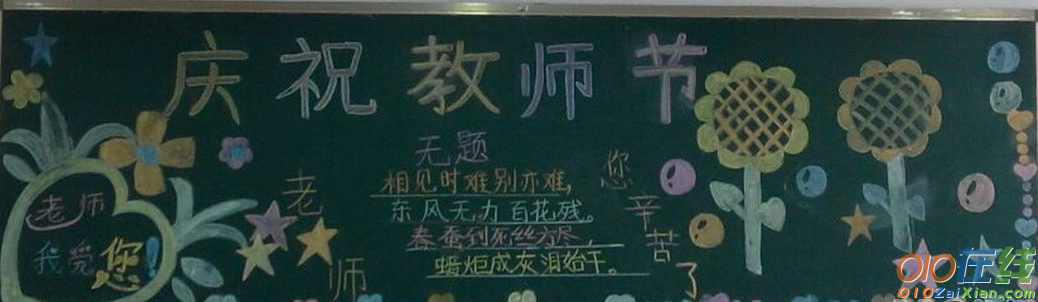 庆祝教师节
无题
相见时难别亦难,
东风无力百花残。
春蚕到死丝方尽,
蜡炬成灰泪始干。
老师
您辛苦了
老师
我爱您!
010在线
010ZaiXian.com